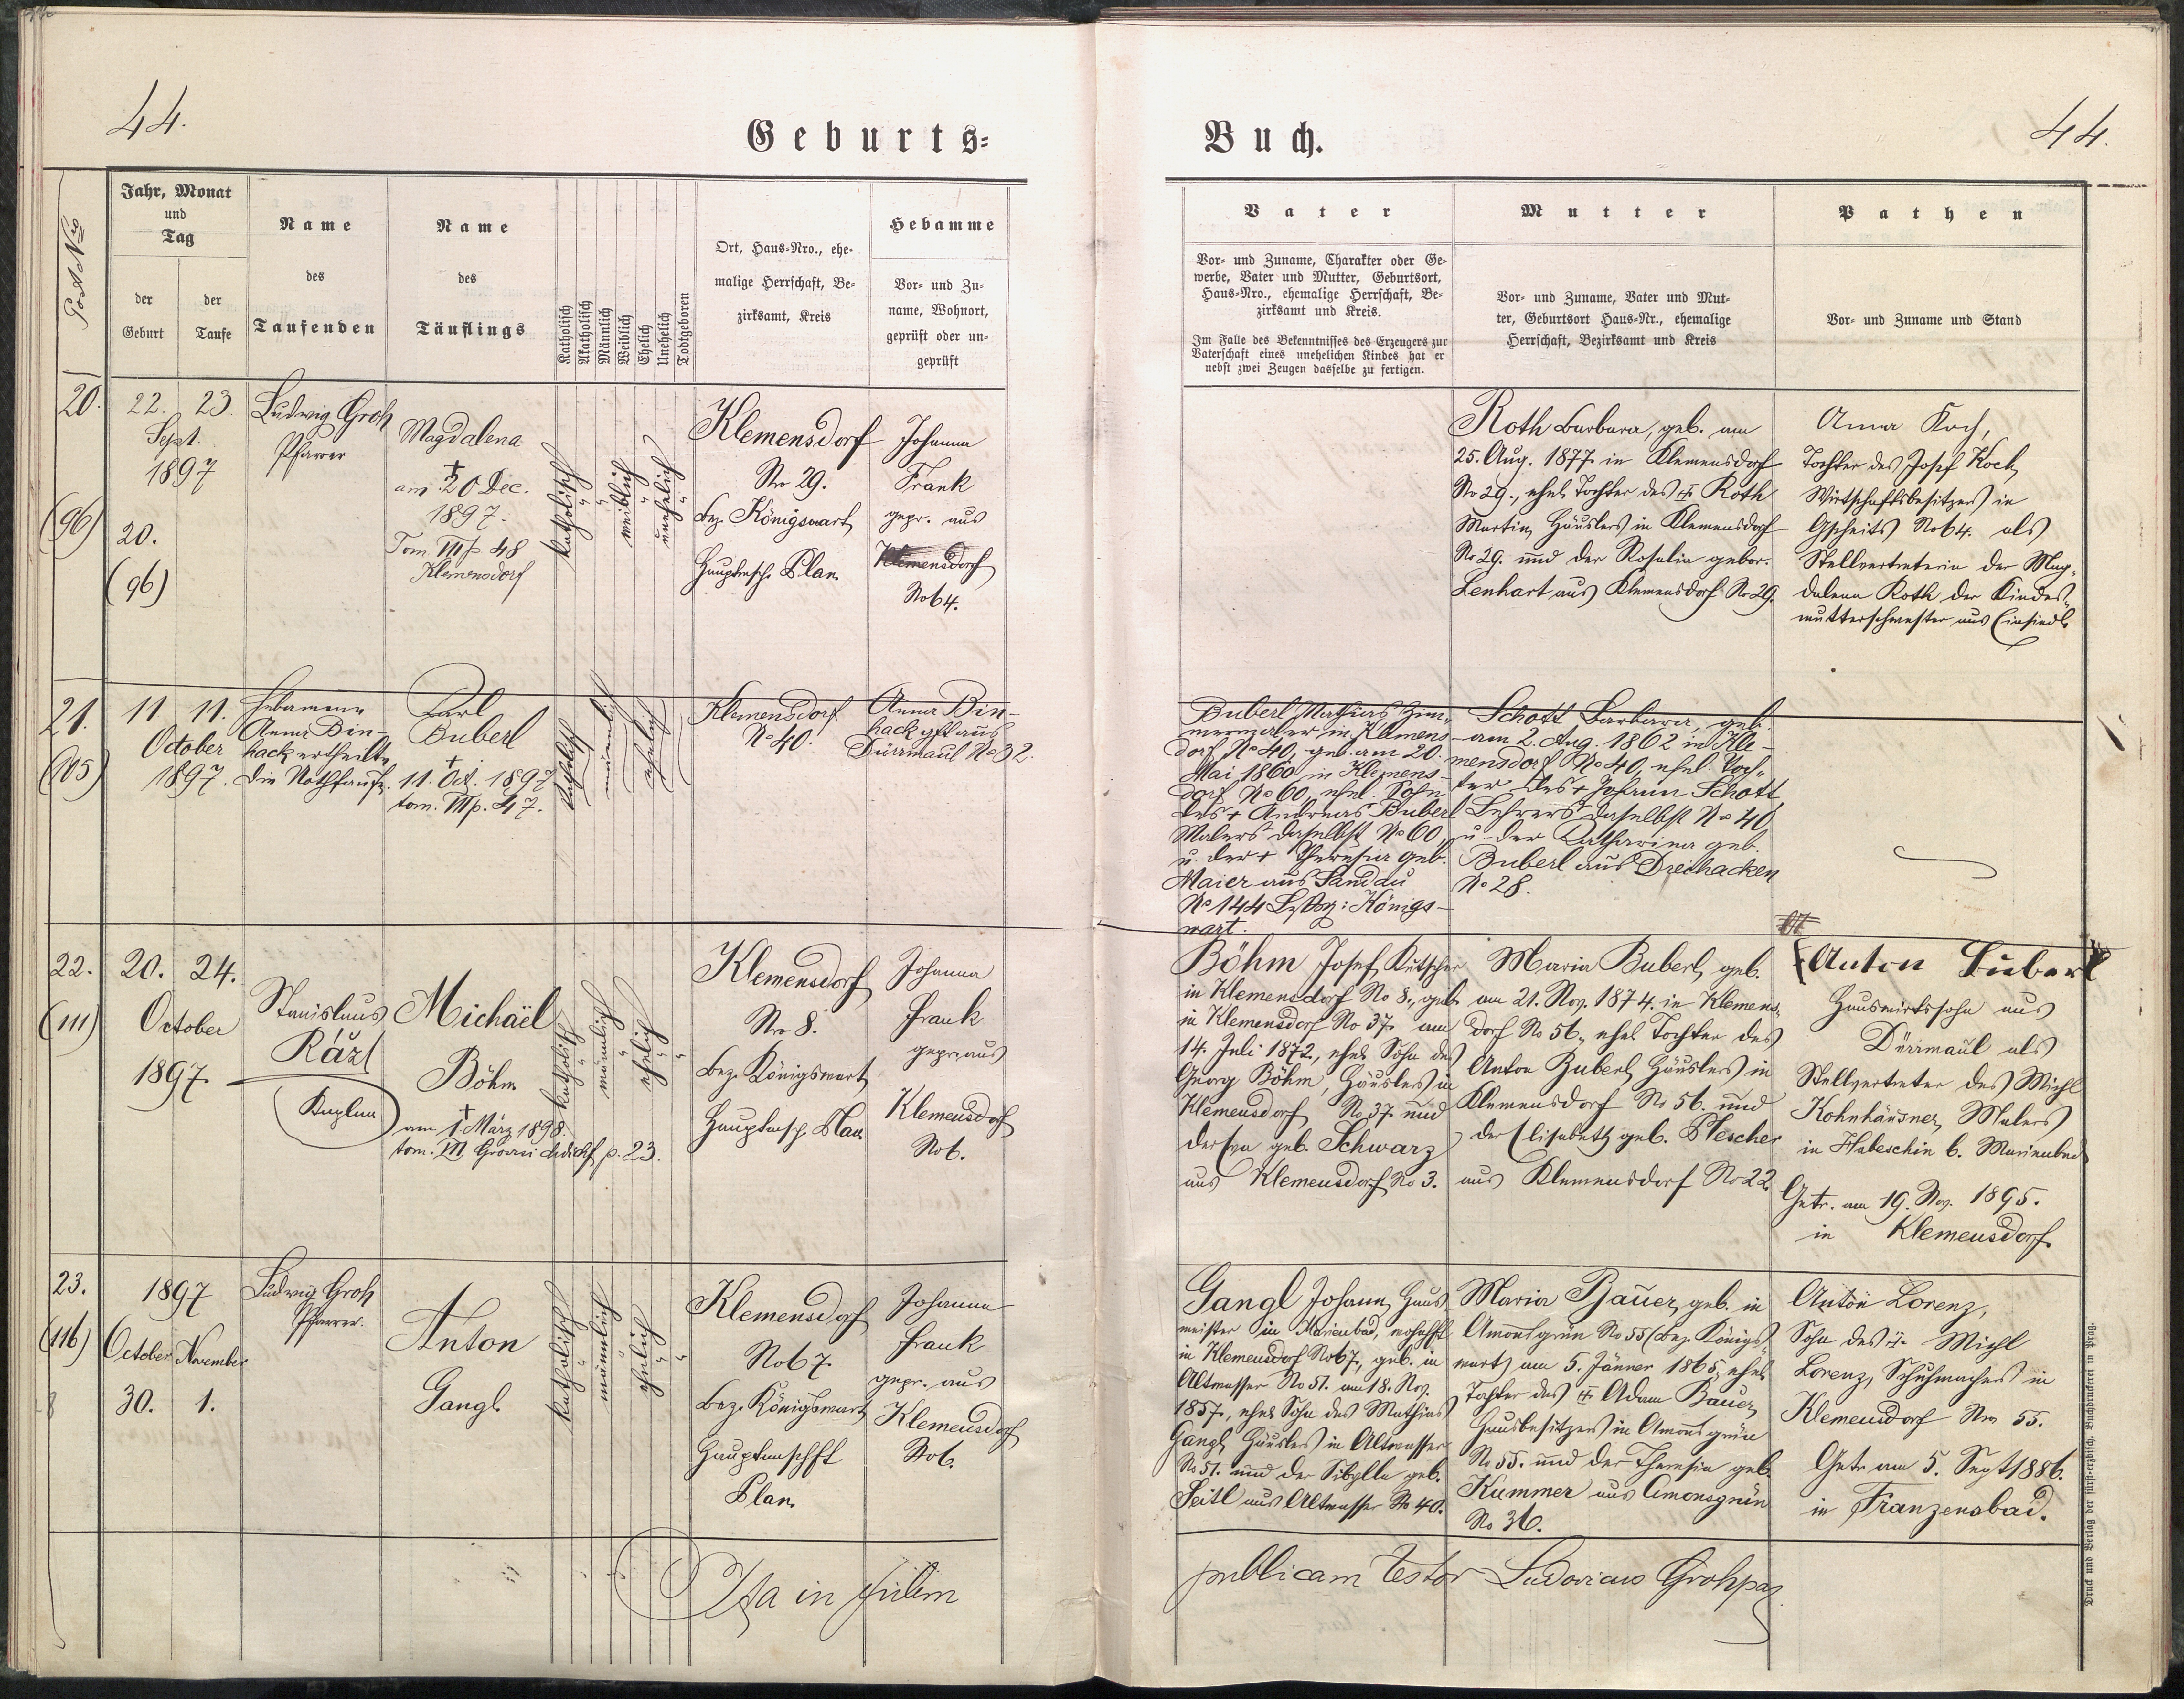 44.
Geburts-
Buch.
44.
Post Nro
Jahr, Monat
und
Tag
der
Geburt
der
Taufe
Name
des
Taufenden
Name
des
Täuflings
Katholisch
Akatholisch
Männlich
Weiblich
Ehelich
Unehelich
Todtgeboren
Ort, Haus-Nro., ehe-
malige Herrschaft, Be-
zirksamt, Kreis
Hebamme
Vor- und Zu-
name, Wohnort,
geprüft oder un-
geprüft
Vater
Vor- und Zuname, Charakter oder Ge-
werbe, Vater und Mutter, Geburtsort,
Haus-Nro., ehemalige Herrschaft, Be-
zirksamt und Kreis.
Im Falle des Bekenntnisses des Erzeugers zur
Vaterschaft eines unehelichen Kindes hat er
nebst zwei Zeugen dasselbe zu fertigen.
Mutter
Vor- und Zuname, Vater und Mut-
ter, Geburtsort Haus-Nr., ehemalige
Herrschaft, Bezirksamt und Kreis
Pathen
Vor- und Zuname und Stand
20.
(96)
22. 23.
Sept.
1897
20.
(96)
Ludwig Groh
Pfarrer
Magdalena
†
am 20 Dec.
1897.
Tom. III p. 48
Klemensdorf
katholisch
weiblich
unehelich
Klemensdorf
No 29.
Bez. Königswart
Hauptmsch. Plan
Johanna
Frank
gepr. aus
Klemensdorf
No 64.
Roth Barbara, geb. am
25. Aug. 1877 in Klemensdorf
No 29., ehel. Tochter des † Roth
Martin, Häuslers in Klemensdorf
No 29. und der Rosalia gebor.
Lenhart aus Klemensdorf No 29.
Anna Koch,
Tochter des Josef Koch,
Wirtschaftsbesitzers in
Gscheits No 64. als
Stellvertreterin der Mag-
dalena Roth der Kindes-
mutterschwester aus Einsiedl.
21.
(105)
11 11.
October
1897.
Hebamme
Anna Bin-
hack ertheilte
die Nothtaufe.
Karl
Buberl
†
11. Oct. 1897
tom. III p. 47.
katholisch
männlich
ehelich
Klemensdorf
No 40.
Anna Bin-
hack gft aus
Dürrmaul No 32.
Buberl Mathias Zim-
mermaler in Klemens-
dorf No 40, geb. am 20.
Mai 1860 in Klemens-
dorf No 60, ehel. Sohn
des † Andreas Buberl
Malers daselbst No 60,
u. der † Theresia geb.
Maier aus Sandau
No 144 Bez: Königs-
wart.
Schott Barbara, geb.
am 2. Aug. 1862 in Kle-
mensdorf No 40, ehel. Toch-
ter des † Johann Schott,
Lehrers daselbst No 40,
u. der Katharina geb.
Buberl aus Dreihacken
No 28.
22.
(111)
20. 24.
October
1897.
Stanislaus
Rázl
Kaplan
Michaël
Böhm
†
am 1. März 1898.
tom. III p. 23.
katholisch
männlich
ehelich
Klemensdorf
No 8.
Bez. Königswart
Hauptmsch. Plan
Johanna
Frank
gepr. aus
Klemensdorf
No 6.
Böhm Josef, Kutscher
in Klemensdorf No 8., geb.
in Klemensdorf No 37. am
14. Juli 1872., ehel. Sohn des
Georg Böhm, Häuslers in
Klemensdorf No 37. und
der Eva geb. Schwarz
aus Klemensdorf No 3.
Maria Buberl, geb.
am 21. Nov. 1874. in Klemens-
dorf No 56., ehel. Tochter des
Anton Buberl, Häuslers in
Klemensdorf No 56. und
der Elisabeth geb. Plescher
aus Klemensdorf No 22.
Anton Buberl
Hauswirtssohn aus
Dürrmaul als
Stellvertreter des Michl
Kohnhäusner, Malers
in Habeschin b. Marienbad
Getr. am 19. Nov. 1895.
in Klemensdorf.
23.
(116)
1897
October November
30. 1.
Ludwig Groh
Pfarrer.
Anton
Gangl.
katholisch
männlich
ehelich
Klemensdorf
No 67.
Bez. Königswart
Hauptmschft
Plan.
Johanna
Frank
gepr. aus
Klemensdorf
No 6.
Gangl Johann, Haus-
meister in Marienbad, wohnhft
in Klemensdorf No 67., geb. in
Altwasser No 51. am 18. Nov.
1857., ehel. Sohn des Mathias
Gangl, Häuslers in Altwasser
No 51. und der Sibylla geb.
Seitl aus Altwasser No 40.
Maria Bauer, geb. in
Amonsgrün No 55 (Bez. Königs-
wart) am 5. Jänner 1865, ehel.
Tochter des † Adam Bauer,
Hausbesitzers in Amonsgrün
No 55. und der Theresia geb.
Kummer aus Amonsgrün
No 36.
Anton Lorenz,
Sohn des † Michl
Lorenz, Schuhmachers in
Klemensdorf No 55.
Getr. am 5. Sept 1886.
in Franzensbad.
Ita in fidem
publicam testor Ludovicus Groh
Druck und Verlag der fürst-erzbisch. Buchdruckerei in Prag.